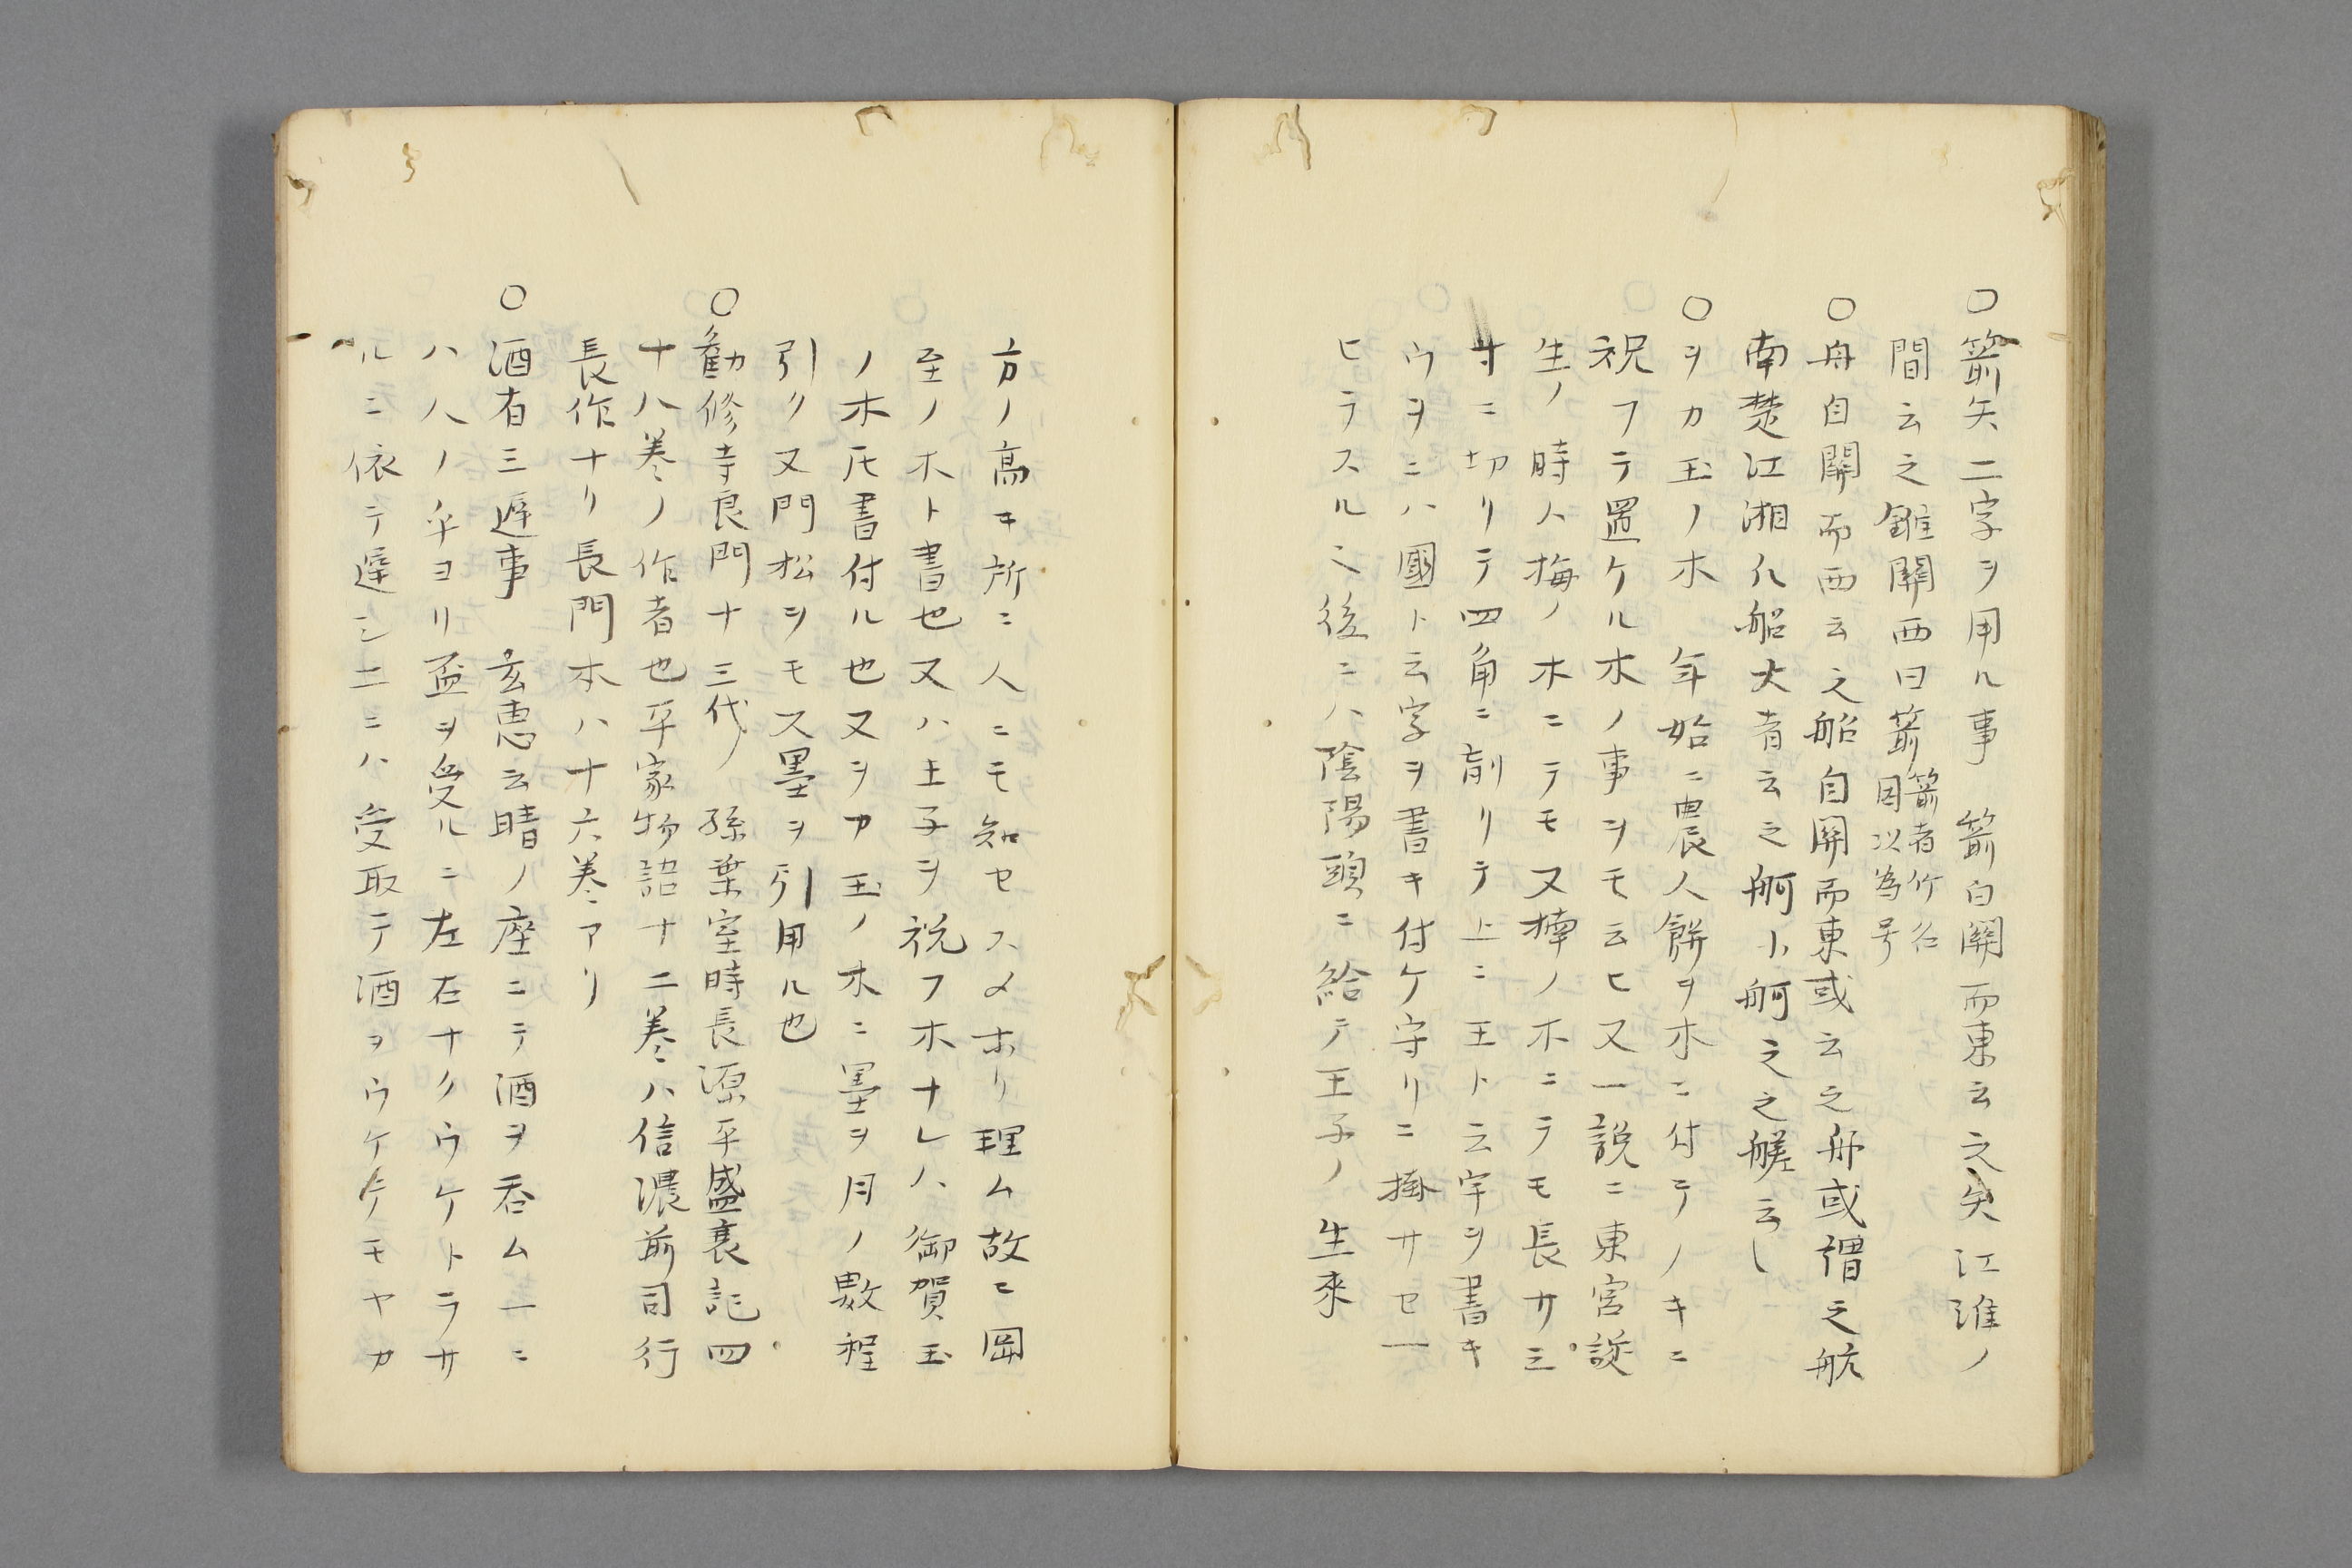 ○箭矢二字ヲ用ル事　箭自關而東云之矢江淮ノ
間云之鏃關西曰箭 箭者竹名
因以為号
○舟自關而西云之船自關而東或云之舟或謂之航
南楚江湘凡船大者云之舸小舸之之艖云〻
○ヲカ玉ノ木　年始ニ農人餅ヲ木ニ付テノキニ
祝フテ置ケル木ノ事ヲモ云ヒ又一説ニ東宮誕
生ノ時ハ梅ノ木ニテモ又楠ノ木ニテモ長サ三
寸ニ切リテ四角ニ削リテ上ニ王ト云字ヲ書キ
ウヲニハ國ト云字ヲ書キ付ケ守リニ掛サセ一
ヒラスル之後ニハ陰陽頭ニ給テ王子ノ生來
方ノ高キ所ニ人ニモ知セスメホリ理ム故ニ岡
至ノ木ト書也又ハ王子ヲ祝フ木ナレハ御賀玉
ノ木𪜈書付ル也又ヲカ玉ノ木ニ墨ヲ月ノ數程
引ク又門松ヲモス墨ヲ引用ル也
○勧修寺良門十三代ノ孫葉室時長源平盛衰記四
十八巻ノ作者也平家物語十二巻ハ信濃前司行
長作ナリ長門本ハ十六巻アリ
○酒有三遅事　玄恵云晴ノ座ニテ酒ヲ呑ム一ニ
ハ人ノ手ヨリ盃ヲ受ルニ左右ナクウケトラサ
ルニ依テ遅シ二ニハ受取テ酒ヲウケテモヤカ